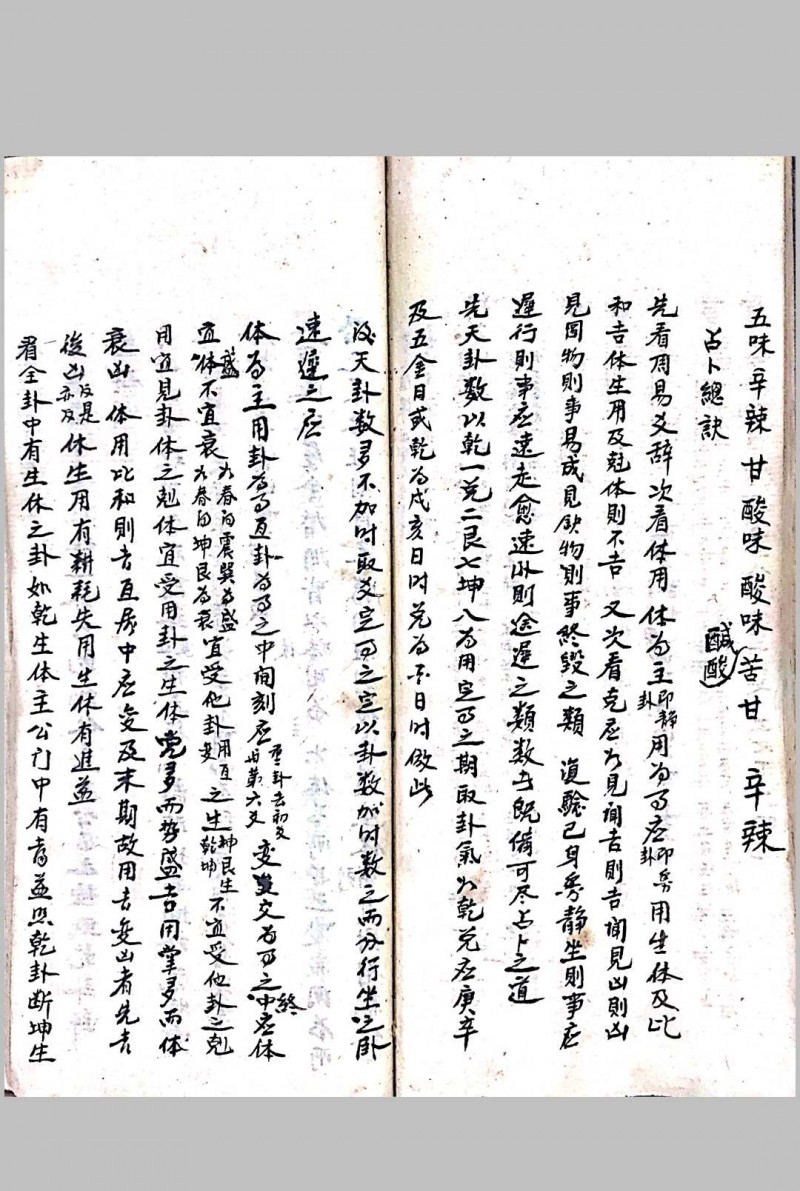 五味 辛辣 甘 酸味 酸味 苦 甘 辛辣
鹹酸
占卜總訣
先看周易爻辞次看体用 体为主即静卦用为事应即動卦用生体及比
和吉体生用及尅体則不吉 又次看克应如見闻吉則吉闻見凶則凶
見囯物則事易成見缺物則事終毀之類 復驗已身動静坐則事应
遲行則事应速走愈速卧則迟遲之類数者既備可尽占卜之道
先天卦数以乾一兑二艮七坤八为用定事之期取卦氣如乾兑应庚辛
及五金日或乾为戌亥日时兑为酉日时倣此
後天卦数多不加时取爻定事之定以卦数加时数之而分行坐之卧
速遲之应
体为主用卦为事互卦为事之中间刻应重卦去初爻与第六爻 变爻为事之終应体
宜盛体不宜衰如春间震巽为盛如春间坤艮为衰宜受他卦用互变之生坤艮生乾 不宜受他卦之尅
用宜見卦体之尅体宜受用卦之生体党多而势盛吉用党多而体
衰凶 体用比和則吉互居中应变及末期故用吉变凶者先吉
後凶反是亦及体生用有耕耗失用生体有進益
看全卦中有生体之卦如乾生体主公门中有喜益照乾卦断坤生